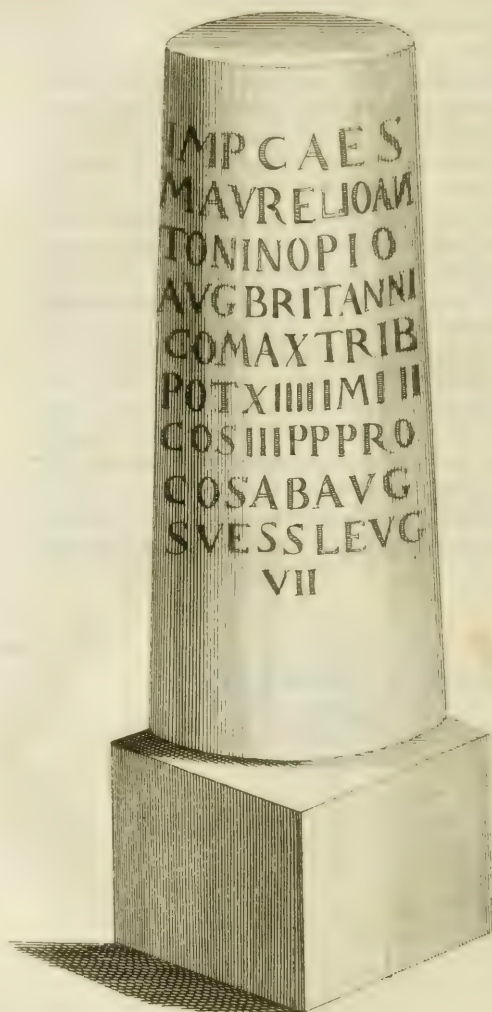 IMPCAES
MAVRELIOAN
TONINOPIO
AVGBRITANNI
COMAXTRIB
POTXIIIIIIMIII
COSIIIPPPRO
COSABAVG
SVESSLEVG
VII